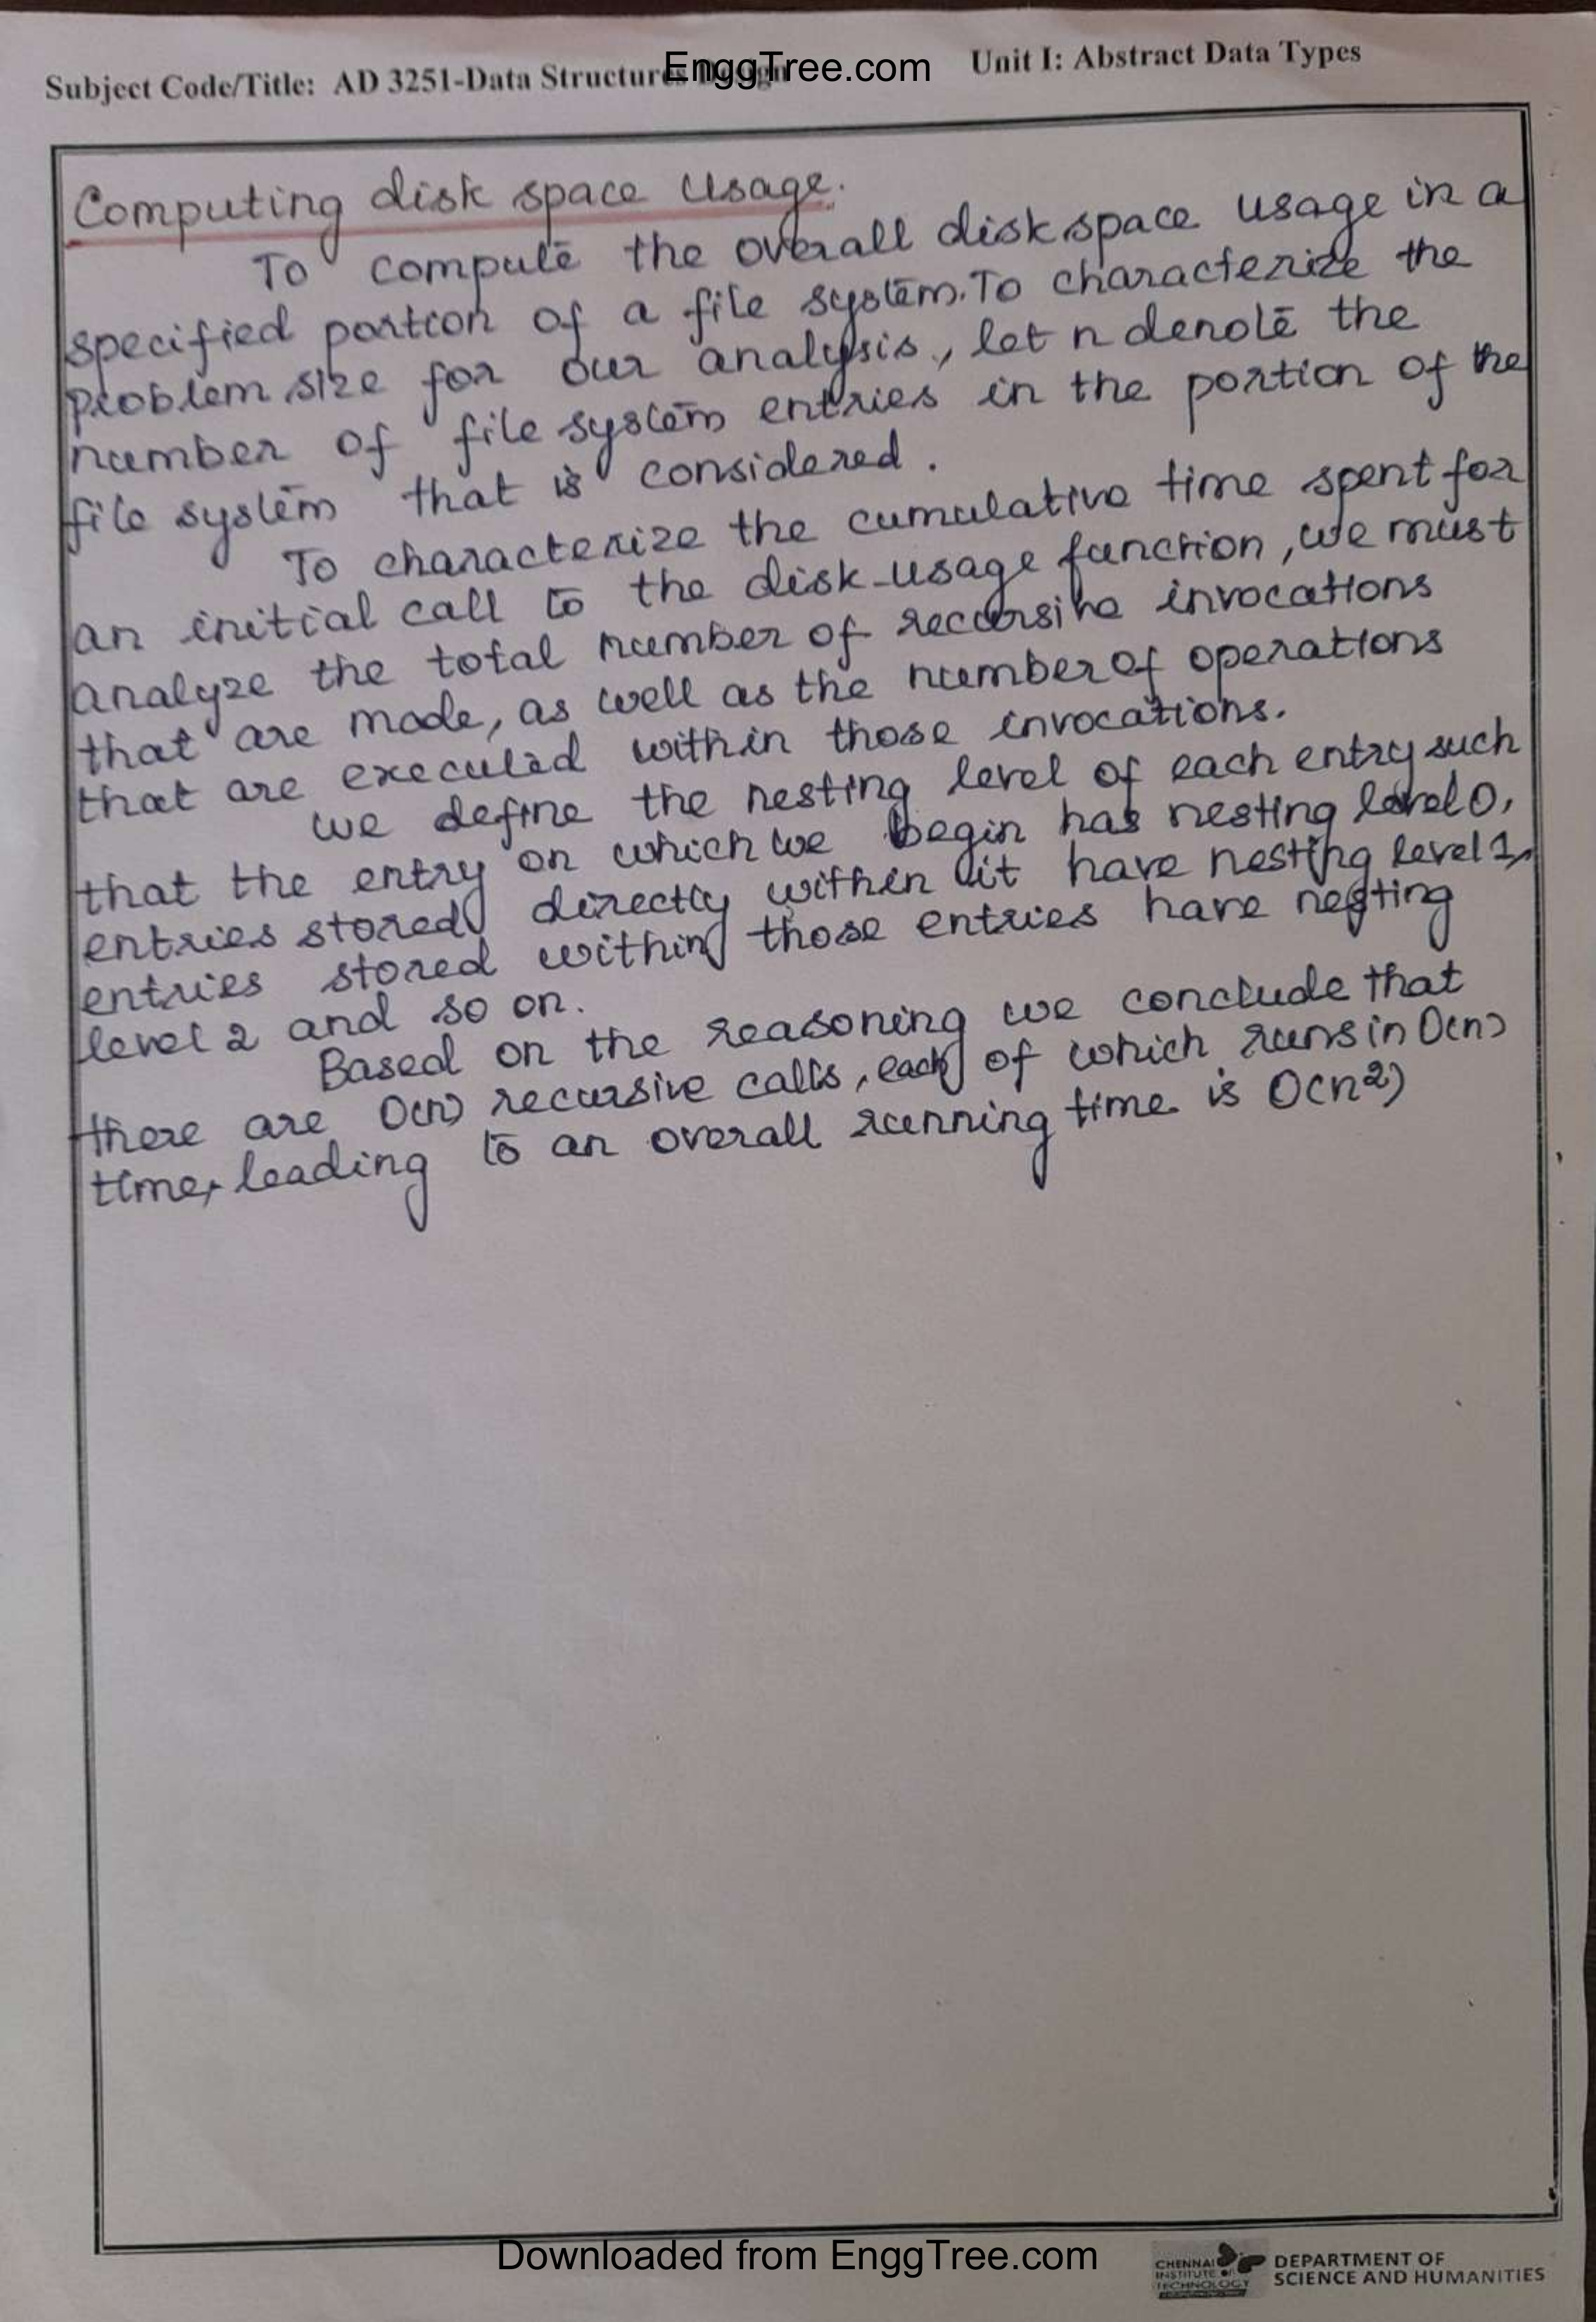 EnggTree.com
Subject Code/Title: AD 3251-Data Structures Design
Unit I: Abstract Data Types
Computing disk space usage.
To compute the overall disk space usage in a
specified portion of a file system. To characterize the
problem size for our analysis, let n denote the
number of file system entries in the portion of the
file system that is considered.
To characterize the cumulative time spent for
an initial call to the disk-usage function, we must
analyze the total number of recursive invocations
that are made, as well as the number of operations
that are executed within those invocations.
we define the nesting level of each entry such
that the entry on which we begin has nesting level 0,
entries stored directly within it have nesting level 1,
entries stored within those entries have nesting
level 2 and so on.
Based on the reasoning we conclude that
there are O(n) recursive calls, each of which runs in O(n)
time, leading to an overall running time is O(n²)
Downloaded from EnggTree.com
CHENNAI
INSTITUTE OF
TECHNOLOGY
DEPARTMENT OF
SCIENCE AND HUMANITIES